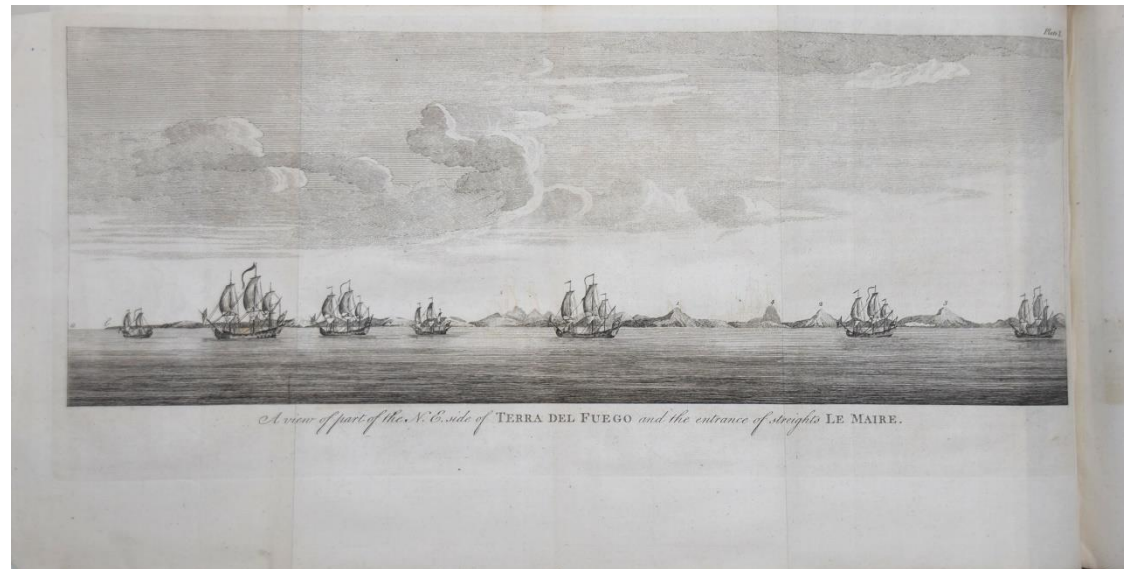 A view of part of the N. E. side of TERRA DEL FUEGO and the entrance of streights LE MAIRE.